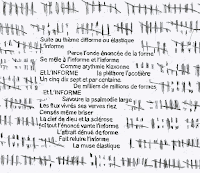 Suite au thème difforme ou élastique
L'informe
Perce l'onde énoncée de la forme
Se mêle à l'informe et l'informe
Comme arythmie klaxonne
ELL'INFORME la pléthore l'acolière
Un cinq dix sept et par centaine
De milliers de millions de formes
ELL'INFORME
Savoure la psalmodie large
Les flux rivés ses verves mec
Censée même briser
La clef de dieu et la sclérose
où tout l'énoncé vante l'informe
L'attrait dénué de forme
Fait reluire l'informe
La muse élastique